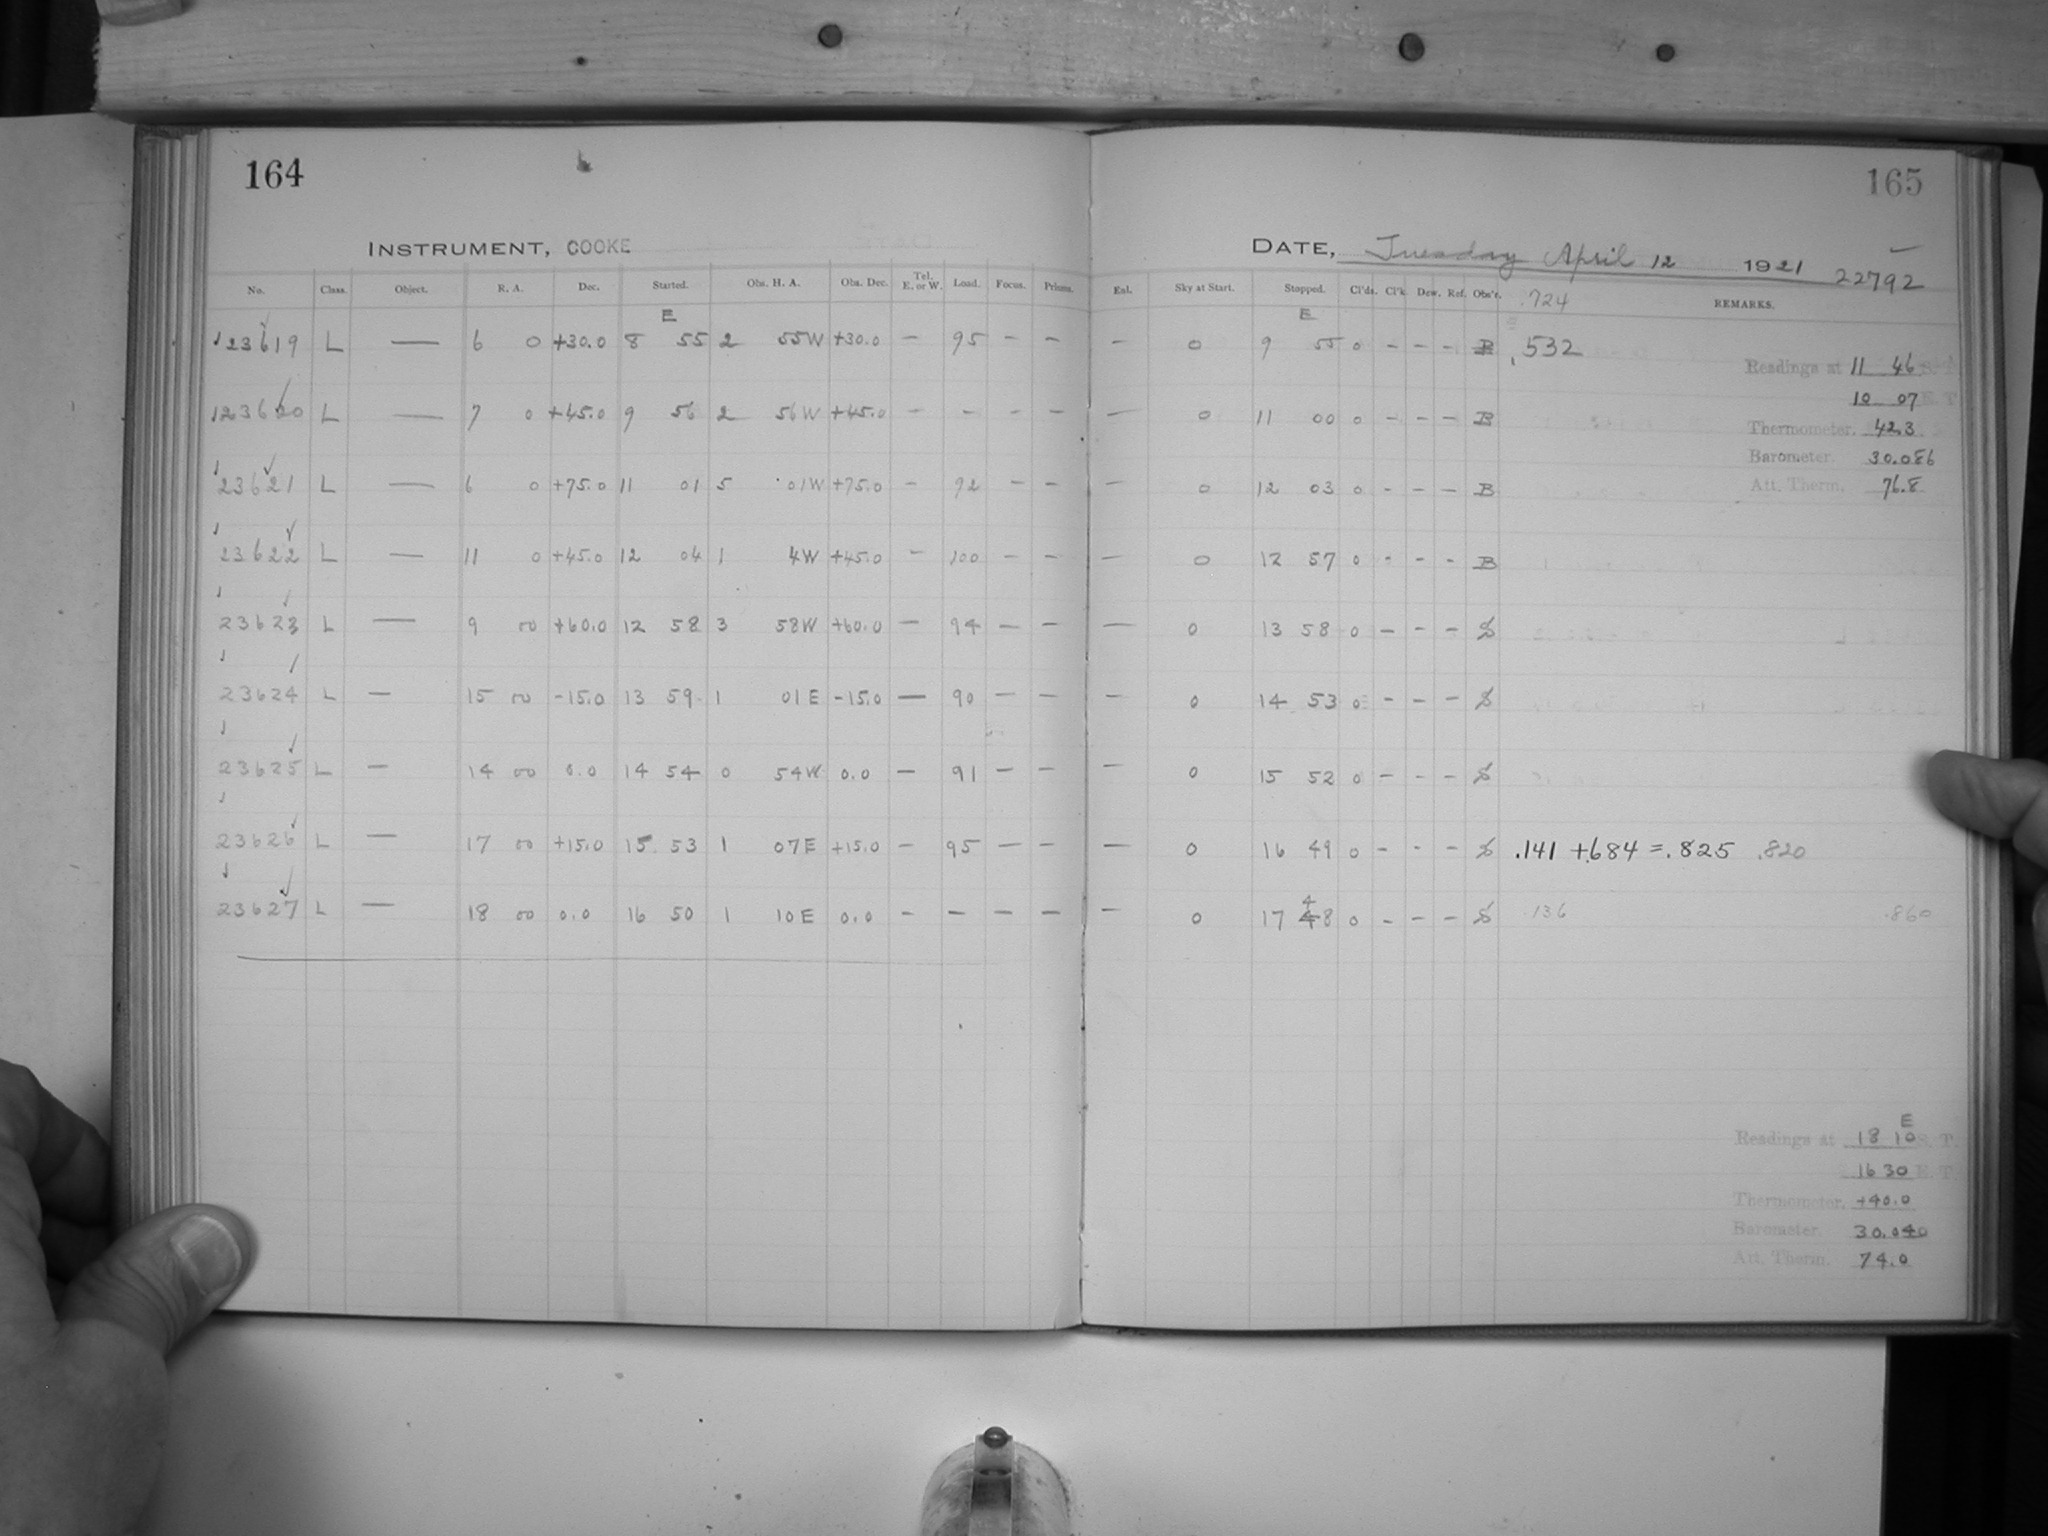 164
165
INSTRUMENT, COOKE
DATE, Tuesday April 12 1921 22792
No. Class. Object. R. A. Dec. Started. Obs. H. A. Obs. Dec. Tel. E. or W. Load. Focus. Prisms. Eal. Sky at Start. Stopped. Cl'ds. Cl'k Dew. Ref. Obs'r. .724 REMARKS.
E E
23619 L — 6 0 +30.0 8 55 2 55W +30.0 — 95 — — — 0 9 55 0 – – – B .532
Readings at 11 46 S. T.
10 07 E. T.
123620 L — 7 0 +45.0 9 56 2 56W +45.0 – – – – — 0 11 00 0 – – – B
Thermometer. 42.3
Barometer. 30.086
23621 L — 6 0 +75.0 11 01 5 01W +75.0 – 92 – – — 0 12 03 0 – – – B
Att. Therm. 76.8
23622 L — 11 0 +45.0 12 04 1 4W +45.0 – 100 – – — 0 12 57 0 – – – B
23623 L — 9 00 +60.0 12 58 3 58W +60.0 — 94 — – — 0 13 58 0 – – – S
23624 L — 15 00 -15.0 13 59 1 01E -15.0 — 90 — — — 0 14 53 0 – – – S
23625 L — 14 00 0.0 14 54 0 54W 0.0 — 91 — — — 0 15 52 0 – – – S
23626 L — 17 00 +15.0 15 53 1 07E +15.0 – 95 — — — 0 16 49 0 – – – S .141 +.684 = .825 .820
23627 L — 18 00 0.0 16 50 1 10E 0.0 – – – – — 0 17 48 0 – – – S .136 .860
4
E
Readings at 18 10 S. T.
16 30 E. T.
Thermometer, +40.0
Barometer. 30.040
Att. Therm. 74.0